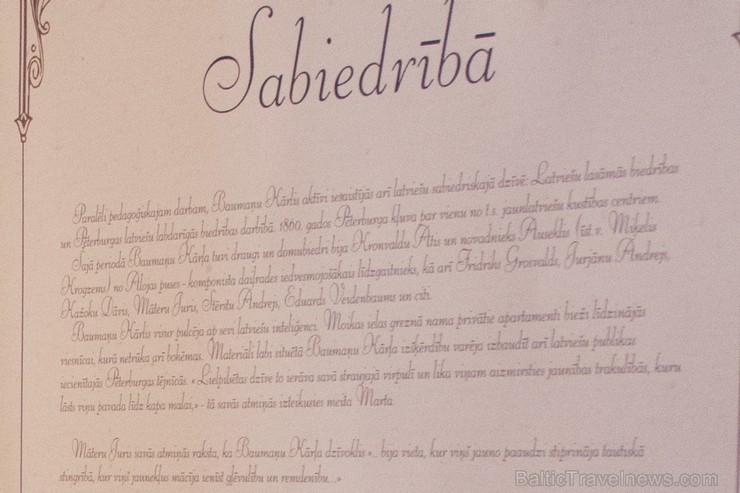 Sabiedrībā
Paralēli pedagoģiskajam darbam, Baumaņu Kārlis aktīvi iesaistījās arī latviešu sabiedriskajā dzīvē: Latviešu lasāmās biedrības
un Pēterburgas latviešu labdarīgās biedrības darbībā. 1860. gados Pēterburga kļuva par vienu no t.s. jaunlatviešu kustības centriem.
Šajā periodā Baumaņu Kārļa tuvi draugi un domubiedri bija Kronvaldu Atis un novadnieks Auseklis (īst. v. Miķelis
Krogzems) no Alojas puses - komponista daiļrades iedvesmojošākais līdzgaitnieks, kā arī Fridrihs Grosvalds, Jurjānu Andrejs,
Kažoku Dāvis, Māteru Juris, Stērstu Andrejs, Eduards Veidenbaums un citi.
Baumaņu Kārlis vina pulcēja ap sevi latviešu inteliģenci. Moikas ielas greznā nama privātie apartamenti bieži līdzinājās
viesnīcai, kurā netrūka arī bohēmas. Materiāli labi situētā Baumaņu Kārļa izšķērdību varēja izbaudīt arī latviešu publikas
iecienītajās Pēterburgas tējnīcās. «Lielpilsētas dzīve to ierāva savā straujajā virpulī un lika viņam aizmirsties jaunības trakulībās, kuru
lāsts viņu pavada līdz kapa malai,» - tā savās atmiņās izteikusies meita Marta.
Māteru Juris savās atmiņās raksta, ka Baumaņu Kārļa dzīvoklis «... bija vieta, kur viņš jauno paaudzi stiprināja tautiskā
stingrībā, kur viņš jaunekļus mācīja ienīst glēvulību un remdenību...»
BalticTravelnews.com